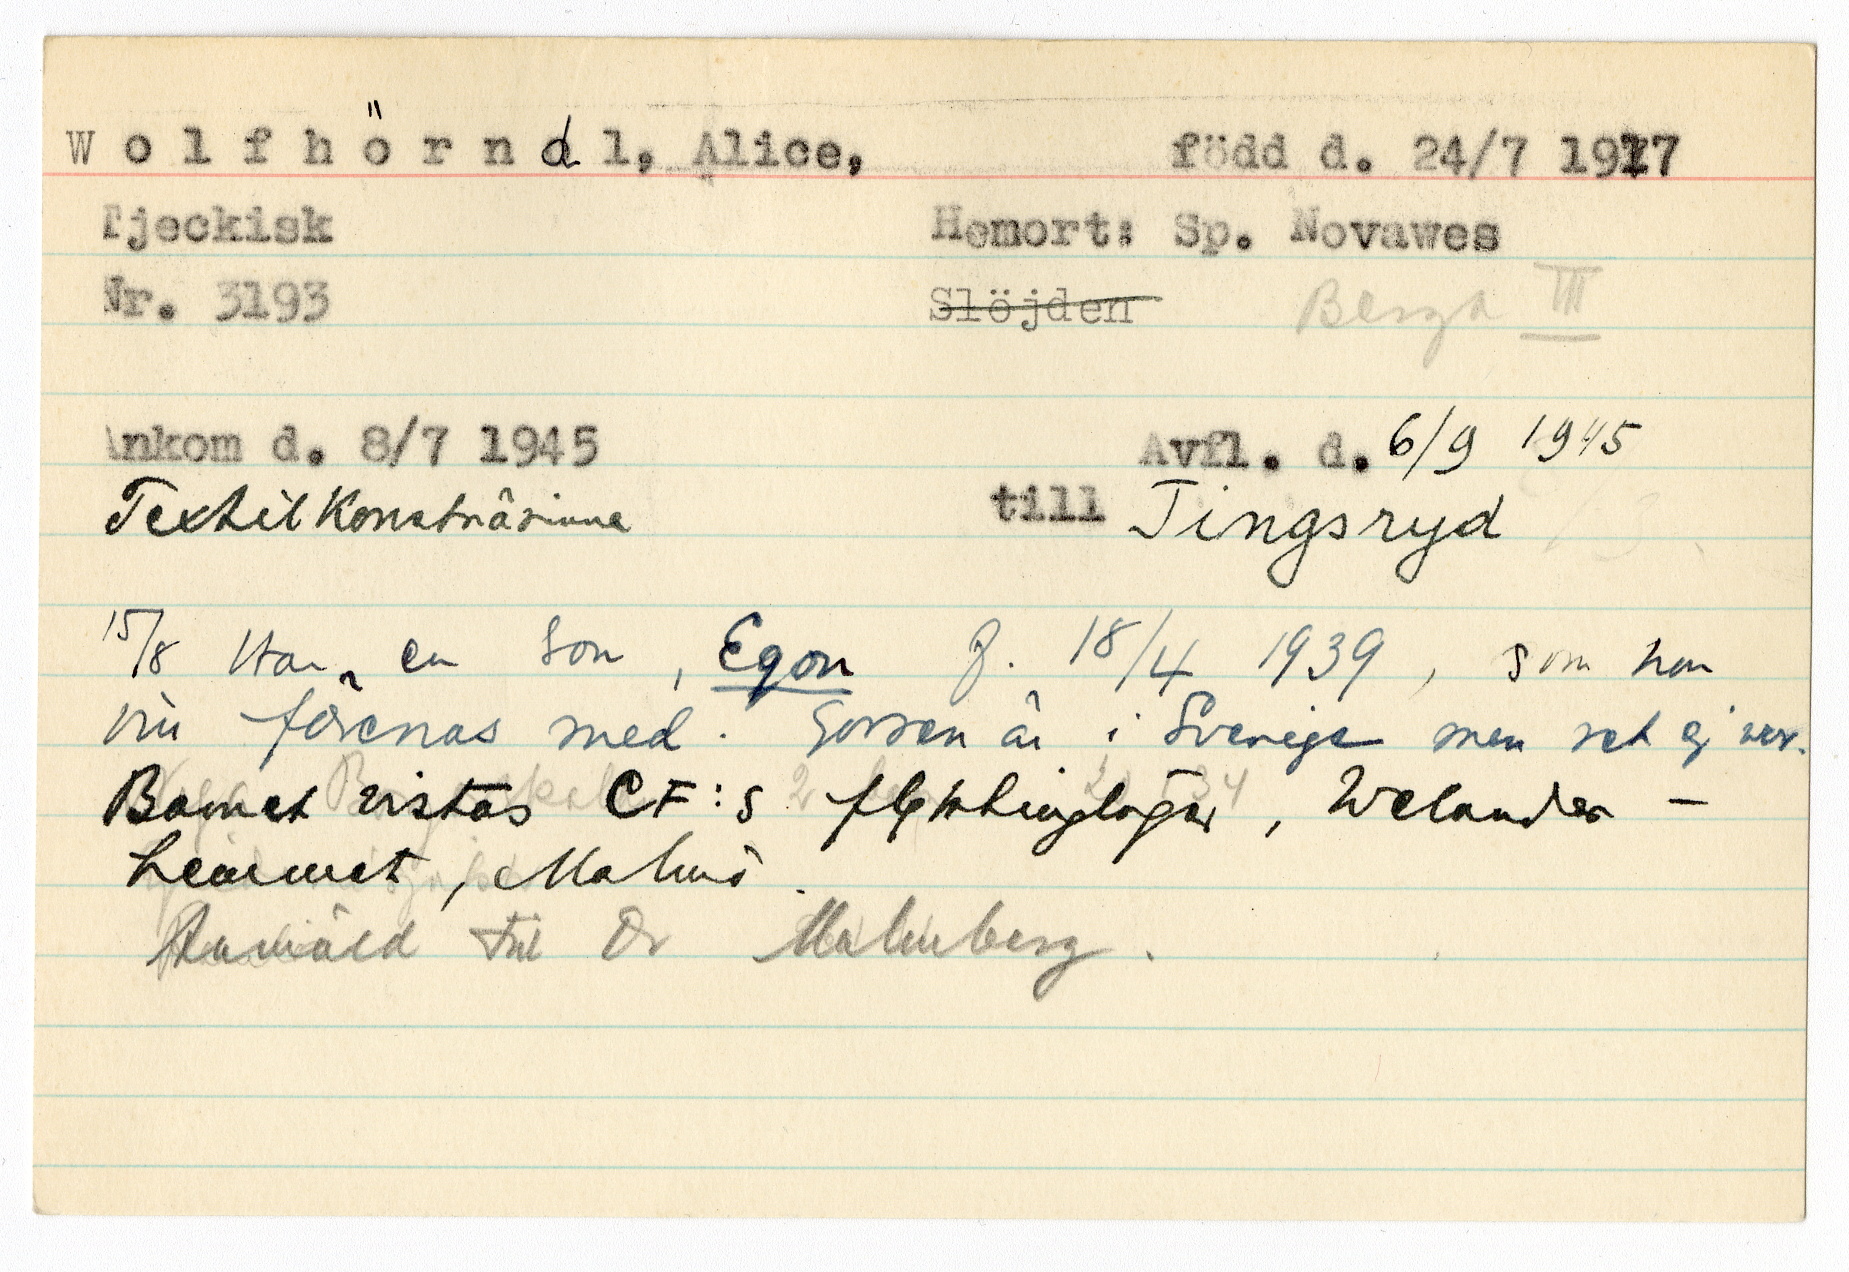 Wolfhörndl, Alice, född d. 24/7 1917
Tjeckisk Hemort: Sp. Novawes
Nr. 3193 Slöjden Berga III
Ankom d. 8/7 1945 Avfl. d. 6/9 1945
Textilkonstnärinna till Tingsryd
15/8 Har en son, Egon f. 18/4 1939, som hon
vill förenas med. Gossen är i Sverige men vet ej var.
Barnet vistas CF:s flyktingläger, Welander-
hemmet, Malmö.
Anmäld till Dr Malmberg.